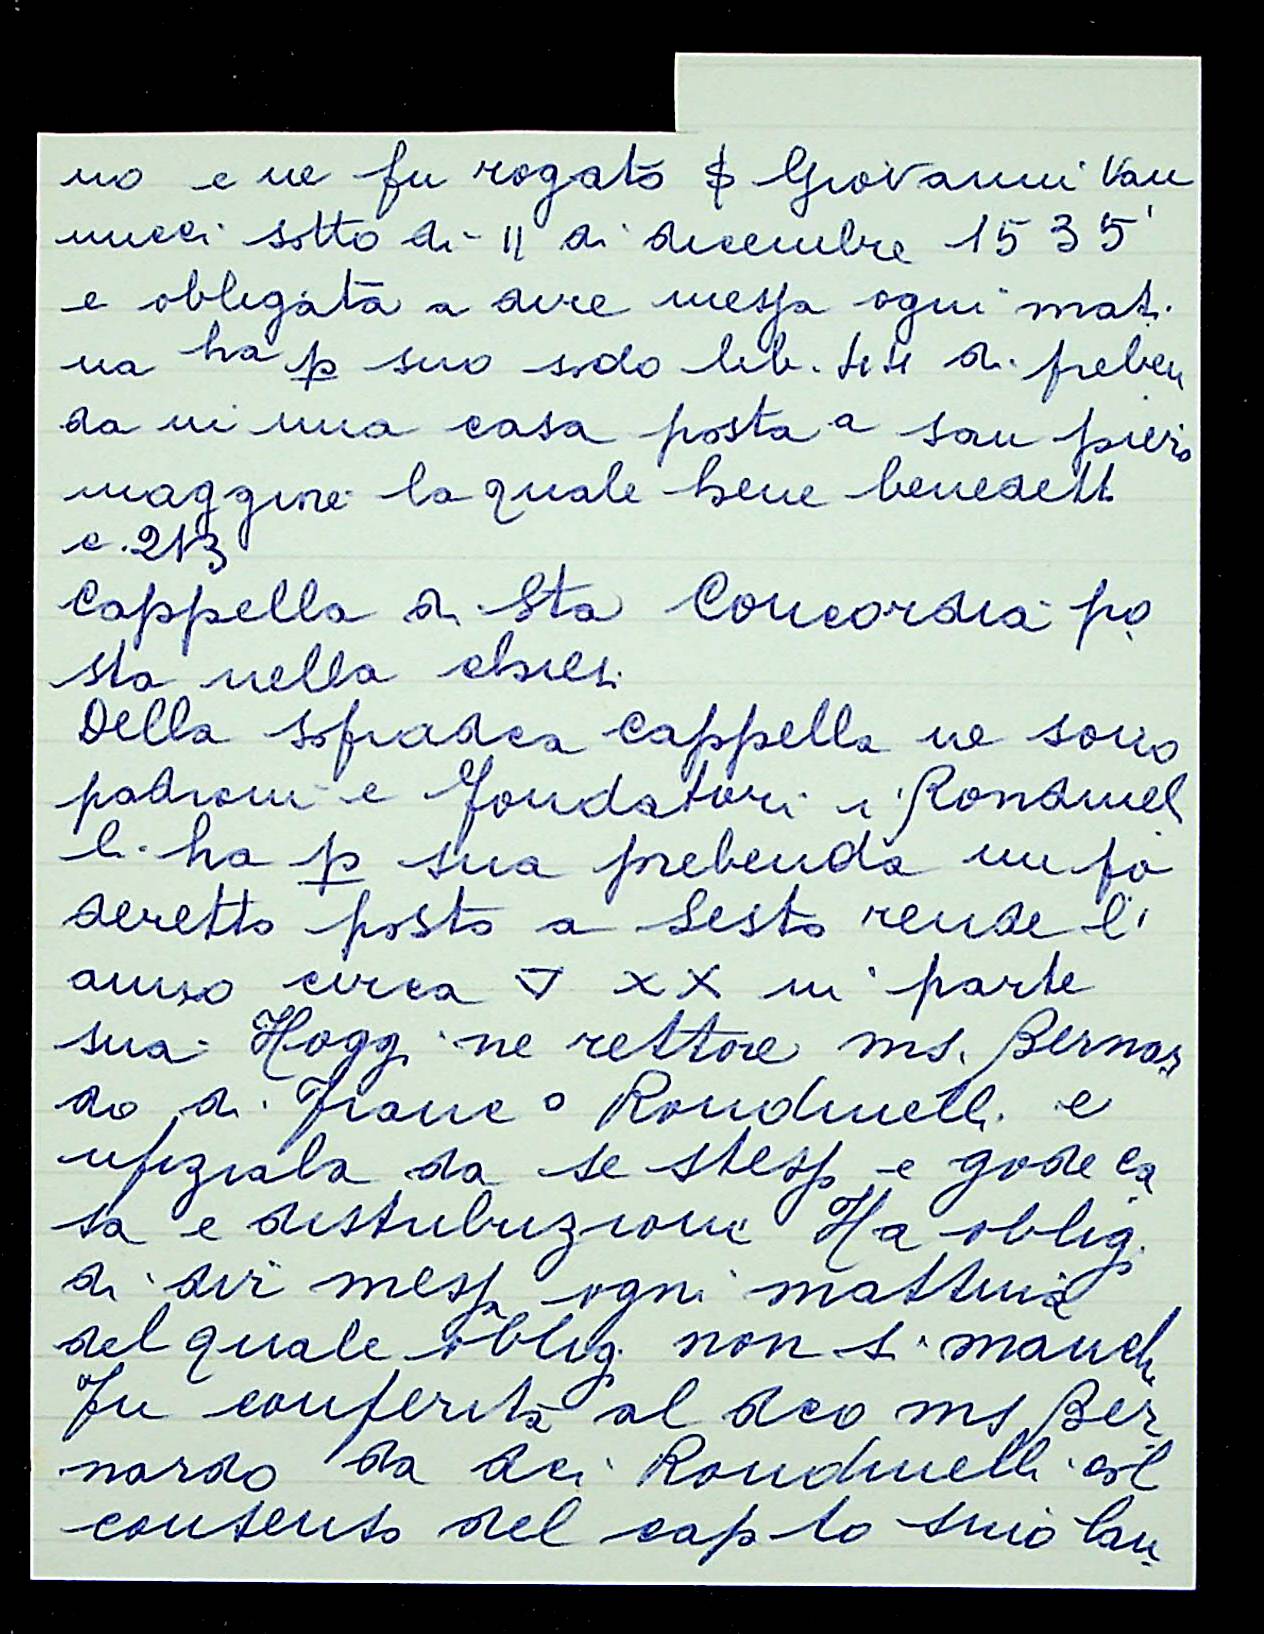 no e ne fu rogato $ Giovanni Van
nucci sotto di 11 di dicembre 1535
e obligata a dire messa ogni mat.
na ha p suo sodo lib. di preben
da in una casa posta a san piero
maggiore la quale tiene benedett.
c. 213
Cappella di Sta Concordia po
sta nella chies.
Della sopradca cappella ne sono
padroni e fondatori i Rondinel
li. ha p sua prebenda un po
deretto posto a Sesto rende l'
anno circa ▽ XX in parte
sua. Hoggi ne rettore ms. Bernar
do di Franc o Rondinelli. e
ufiziala da se stesso e gode ca
sa e distribuzioni Ha oblig.
di dir messa ogni mattina
del quale oblig. non si manch.
Fu conferita al dco ms Ber
nardo da dci Rondinelli col
consenso del cap lo suo lau